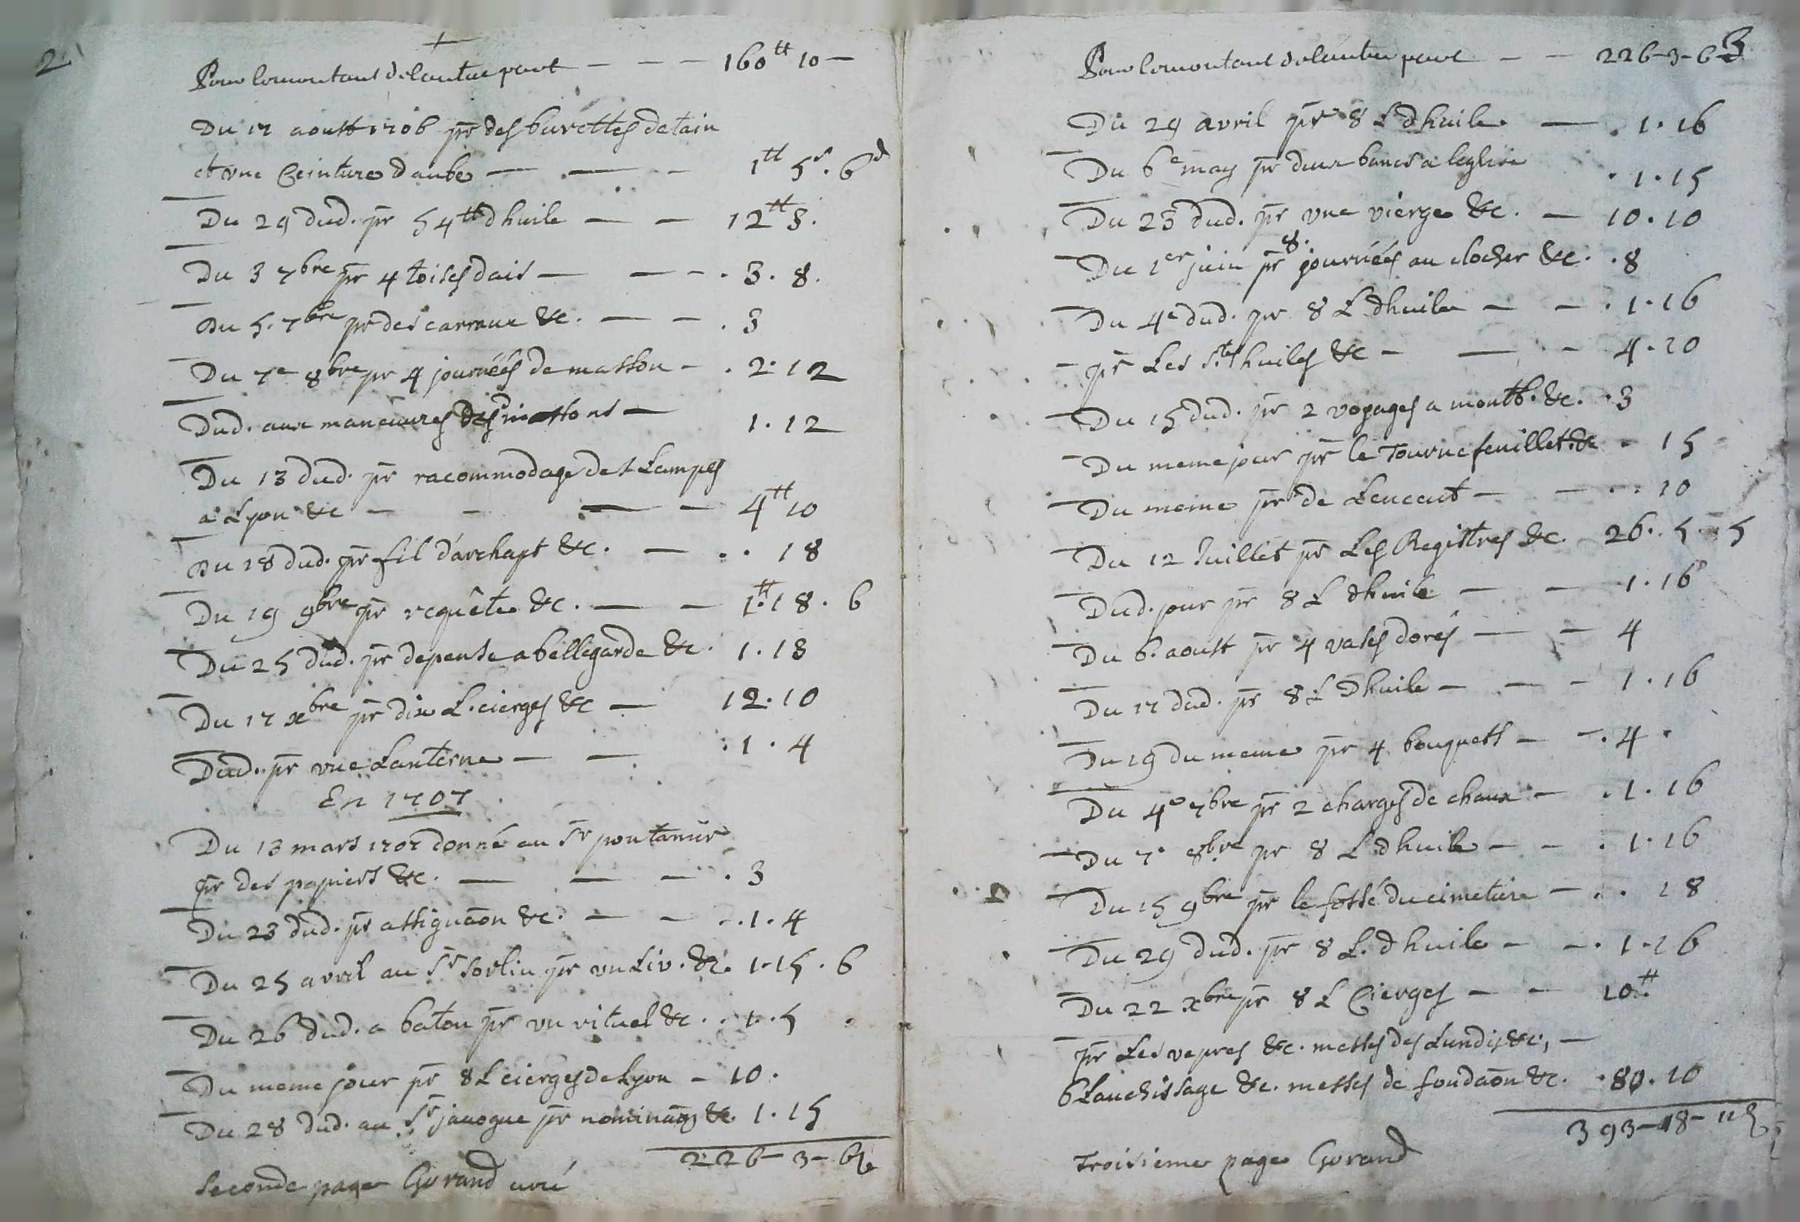 2
Pour lemontant delautre part — — — 160ᵗᵗ 10 —
Du 17 aoust 1706 pr des burettes detain
et une Ceinture daube — — — 1ᵗᵗ 5ˢ. 6ᵈ
Du 29 dud. pr 54ᵗᵗ dhuile — — 12ᵗᵗ 3.
Du 3 7bre pr 4 toises dais — — — . 3 . 8.
Du 5. 7bre pr des carraux &c. — — . 3
Du 7e 8bre pr 4 journéés de masson — . 2 . 12
Dud. aux manœuvres des massons — 1 . 12
Du 13 dud. pr racommodage des Lampes
a Lyon &c — — — — 4ᵗᵗ 10
Du 18 dud. pr fil d'archapt &c. — — . . 18
Du 19 9bre pr requête &c. — — 1ᵗᵗ. 18 . 6
Du 25 dud. pr depense abellegarde &c. 1 . 18
Du 17 xbre pr dix L. cierges &c — 12 . 10
Dud. pr une Lanterne — — . 1 . 4
En 1707
Du 13 mars 1707 donné au Sr pontanier
pr des papiers &c. — — — . 3
Du 23 dud. pr assignaõn &c. — — . . 1 . 4
Du 25 avril au Sr Sorlin pr un Liv. &c. 1 . 15 . 6
Du 26 dud. a baton pr un rituel &c. . 1 . 5 .
Du meme jour pr 8 L cierges de Lyon — 10 .
Du 28 dud. au Sr janogue pr &c. 1 . 15
226 — 3 — 6
Seconde page Gorand curé
3
Pour lemontant delautre part — — 226 — 3 — 6
Du 29 avril pr 8 L dhuile. — . 1 . 16
Du 6e may pr deux bancs a leglise . 1 . 15
Du 23 dud. pr une vierge &c. — 10 . 10
Du 1er juin pr 8. journéés au clocher &c. . 8
Du 4e dud. pr 8 L dhuile — — . 1 . 16
pr Les Stes huiles &c — — — 4 . 10
Du 15 dud. pr 2 voyages a montb. &c. . 3
Du meme jour pr le Tournefeuillet &c . 15
Du meme pr de Lencent — — . . 10
Du 12 Juillet pr Les Regittres &c. 26 . 5 . 5
Dud. jour pr 8 L dhuile — — 1 . 16
Du 6. aoust pr 4 vases dorés — — 4
Du 17 dud. pr 8 L Dhuile — — — 1 . 16
Du 19 du meme pr 4 bouquets — — . 4 .
Du 4e 7bre pr 2 charges de chaux — . 1 . 16
Du 7e 8bre pr 8 L dhuile — — . 1 . 16
Du 15 9bre pr le fossé du cimetiere — . . 18
Du 29 dud. pr 8 L. dhuile — — . 1 . 16
Du 22 xbre pr 8 L Cierges — — 10ᵗᵗ.
pr Les vepres &c. messes des Lundis &c, —
blanchissage &c. messes de fondaõn &c. . 80 . 10
393 — 18 — 11
Troisieme page Gorand